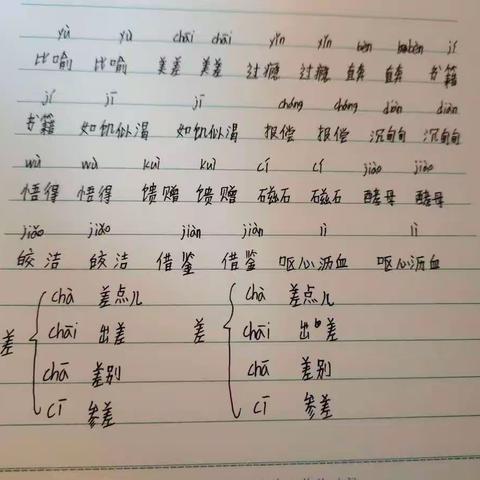 yù yù chāi chāi yǐn yǐn bèn bèn jí
比喻 比喻 美差 美差 过瘾 过瘾 直奔 直奔 书籍
jí jī jī cháng cháng diàn diàn
书籍 如饥似渴 如饥似渴 报偿 报偿 沉甸甸 沉甸甸
wù wù kuì kuì cí cí jiào jiào
悟得 悟得 馈赠 馈赠 磁石 磁石 酵母 酵母
jiǎo jiǎo jiàn jiàn lì lì
皎洁 皎洁 借鉴 借鉴 呕心沥血 呕心沥血
chà 差点儿 chà 差点儿
差 chāi 出差 差 chāi 出差
chā 差别 chā 差别
cī 参差 cī 参差